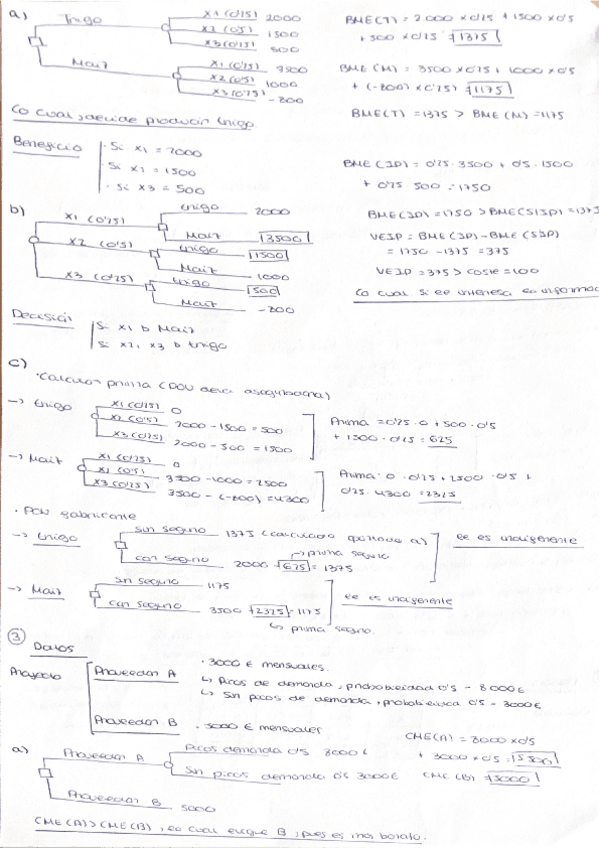 a)
Trigo
X1 (0'25) 2000
X2 (0'5) 1500
X3 (0'25) 500
Maiz
X1 (0'25) 3500
X2 (0'5) 1000
X3 (0'25) -800
BME(T) = 2.000 x 0'25 + 1500 x 0'5
+ 500 x 0'25 = 1375
BME (M) = 3500 x 0'25 + 1000 x 0'5
+ (-800) x 0'25 = 1175
BME(T) = 1375 > BME (M) = 1175
Lo cual, decide producir trigo.
Beneficio
· Si X1 = 2000
· Si X2 = 1500
· Si X3 = 500
b)
X1 (0'25)
trigo 2000
Maiz 3500
X2 (0'5)
trigo 1500
Maiz 1000
X3 (0'25)
trigo 500
Maiz -800
BME (IP) = 0'25 · 3500 + 0'5 · 1500
+ 0'25 · 500 = 1750
BME(IP) = 1750 > BME(SIP) = 1375
VEIP = BME (IP) - BME (SIP)
= 1750 - 1375 = 375
VEIP = 375 > coste = 100
Lo cual si le interesa la informac
Decisión
Si X1 → Maiz
Si X2, X3 → trigo
c)
· Calcular prima (POV de la aseguradora)
→ trigo
X1 (0'25) 0
X2 (0'5) 2000 - 1500 = 500
X3 (0'25) 2000 - 500 = 1500
Prima = 0'25 · 0 + 500 · 0'5
+ 1500 · 0'25 = 625
→ Maiz
X1 (0'25) 0
X2 (0'5) 3500 - 1000 = 2500
X3 (0'25) 3500 - (-800) = 4300
Prima: 0 · 0'25 + 2500 · 0'5 +
0'25 · 4300 = 2325
· POV fabricante
→ trigo
sin seguro 1375 (calculado apartado a)
con seguro 2000 - 625 = 1375
→ prima seguro
le es indiferente
→ Maiz
sin seguro 1175
con seguro 3500 - 2325 = 1175
↳ prima seguro.
le es indiferente
3 Datos
Proyecto
Proveedor A · 3000 € mensuales.
↳ Picos de demanda, probabilidad 0'5 - 8000€
↳ Sin picos de demanda, probabilidad 0'5 - 3000€
Proveedor B · 5000 € mensuales
a)
Proveedor A
Picos demanda 0'5 8000 €
Sin picos demanda 0'5 3000€
Proveedor B 5000
CME(A) = 8000 x 0'5
+ 3000 x 0'5 = 5500
CME (B) = 5000
CME(A) > CME(B), lo cual elige B, pues es mas barato.